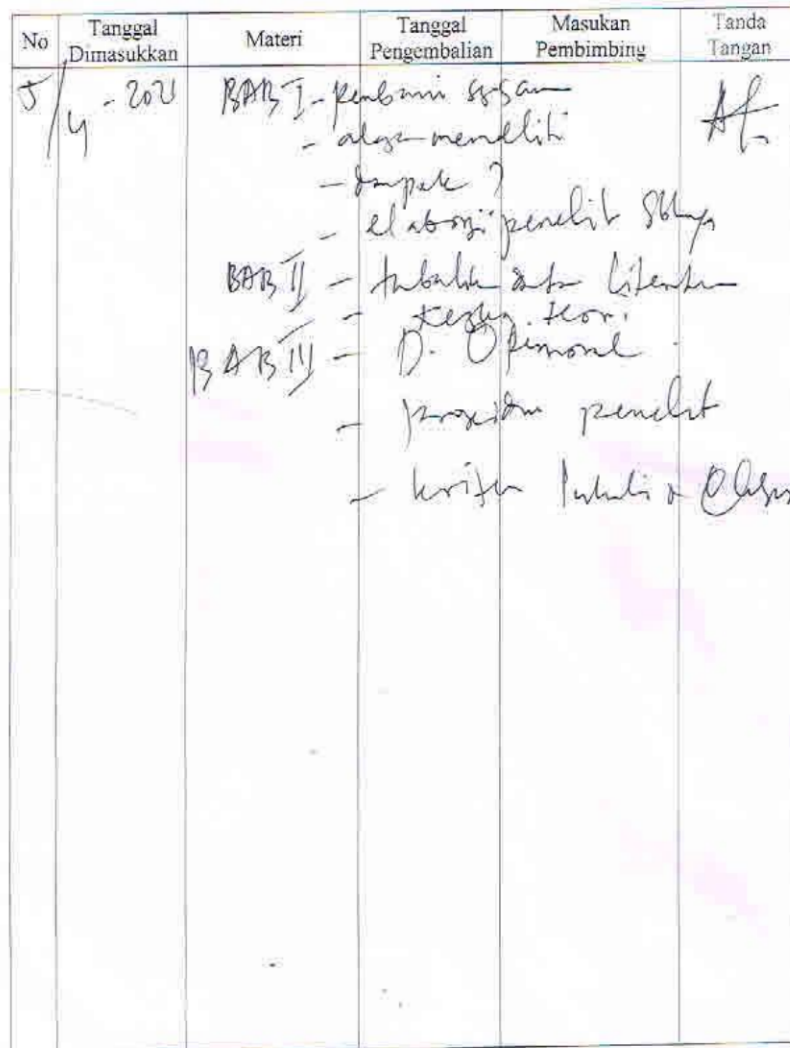 No Tanggal Dimasukkan Materi Tanggal Pengembalian Masukan Pembimbing Tanda Tangan
5/4 - 2021 BAB I -
- alasan meneliti
- dampak ?
- elaborasi penelit sblmnya
BAB II - literatur
- teori
BAB III - D. Operasional
- prosedur penelit
- kriteria Inklusi & Eklusi